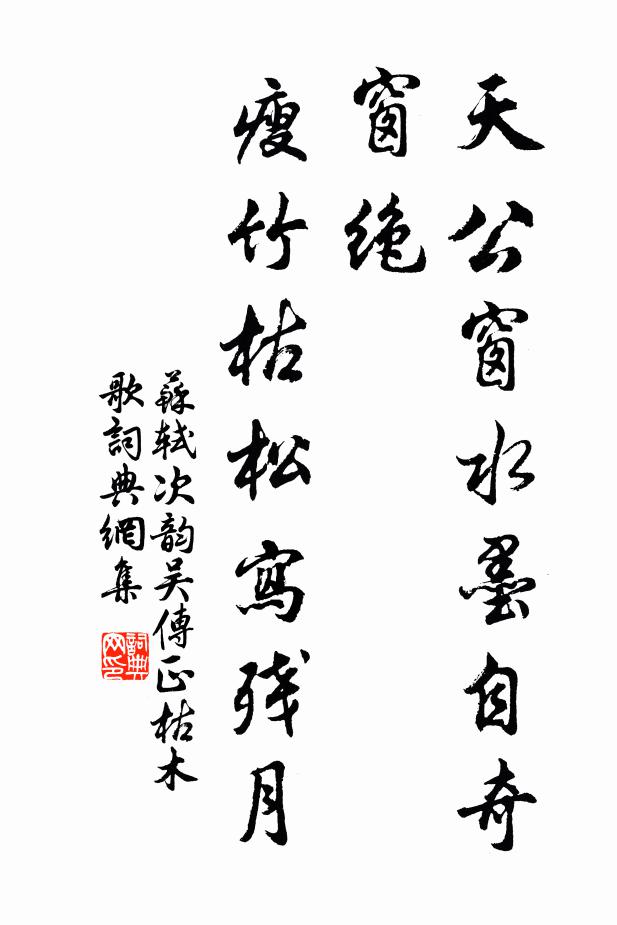 天公窗水墨自奇
窗绝
瘦竹枯松寫残月
蘇軾次韵吴傳正枯木
歌詞典網集
詞典
网印